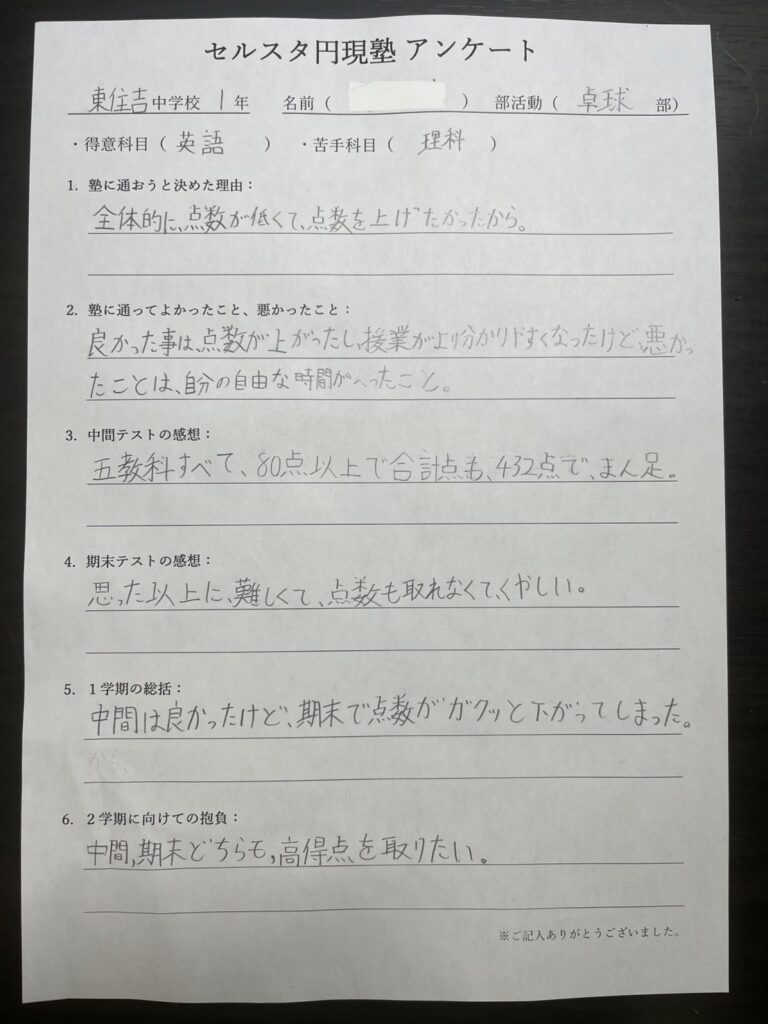 セルスタ円現塾 アンケート
東住吉中学校 1年 名前（ ） 部活動（ 卓球 部）
・得意科目（ 英語 ） ・苦手科目（ 理科 ）
1. 塾に通おうと決めた理由：
全体的に、点数が低くて、点数を上げたかったから。
2. 塾に通ってよかったこと、悪かったこと：
良かった事は、点数が上がったし、授業がより分かりやすくなったけど、悪かっ
たことは、自分の自由な時間がへったこと。
3. 中間テストの感想：
五教科すべて、80点以上で合計点も、432点で、まん足。
4. 期末テストの感想：
思った以上に、難しくて、点数も取れなくて、くやしい。
5. 1学期の総括：
中間は良かったけど、期末で点数がガクッと下がってしまった。
から、
6. 2学期に向けての抱負：
中間,期末どちらも,高得点を取りたい。
※ご記入ありがとうございました。